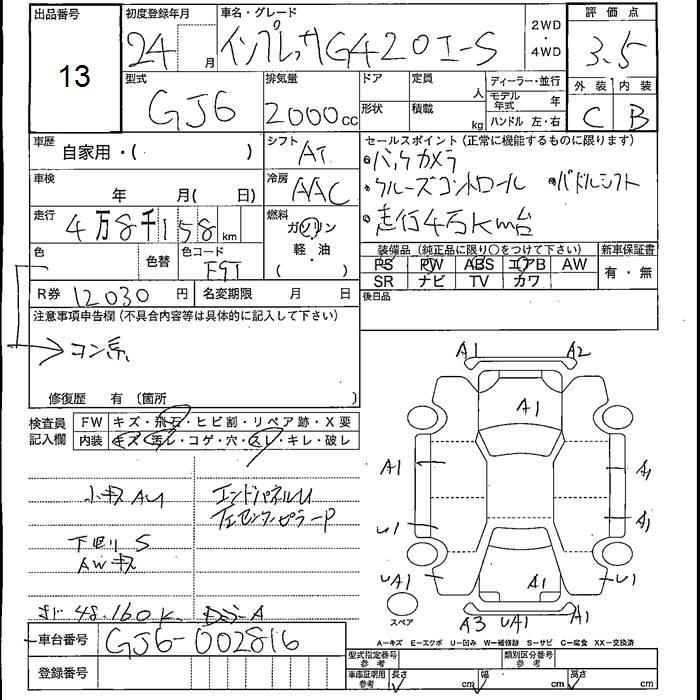 出品番号 初度登録年月 車名・グレード 2WD・4WD 評価点
13 24 月 インプレッサG4 2.0I-S 3.5
型式 排気量 ドア 定員 人 ディーラー・並行 外装 内装
GJ6 2000cc 形状 積載 kg モデル年式 年 C B
ハンドル 左・右
車歴 自家用・( ) シフト AT セールスポイント (正常に機能するものに限ります)
・バックカメラ
車検 年 月( 日) 冷房 AAC ・クルーズコントロール ・パドルシフト
走行 4万8千158km 燃料 ガソリン・軽・油 ( ) ・走行4万km台
色 色替 色コード F9T 装備品 (純正品に限り○をつけて下さい) 新車保証書
PS PW ABS エアB AW 有・無
SR ナビ TV カワ
R券 12030 円 名変期限 月 日 後日品
注意事項申告欄 (不具合内容等は具体的に記入して下さい)
→コン系
修復歴 有 (箇所 )
検査員記入欄 FW キズ・飛石・ヒビ割・リペア跡・X要
内装 キズ・汚レ・コゲ・穴・スレ・キレ・破レ
A1 A2
A1
A1 A1
U1 A1
UA1 A1 U1
A3 UA1 A1
スペア
小キズ AU エンドパネルU
左センターピラーP
下回リ S
AWキズ
48.160K
A-キズ E-エクボ U-凹み W-補修跡 S-サビ C-腐食 XX-交換済
車台番号 GJ6-002816
登録番号
型式指定番号 参考 類別区分番号 参考
車庫証明用 参考 長さ cm 幅 cm 高さ cm